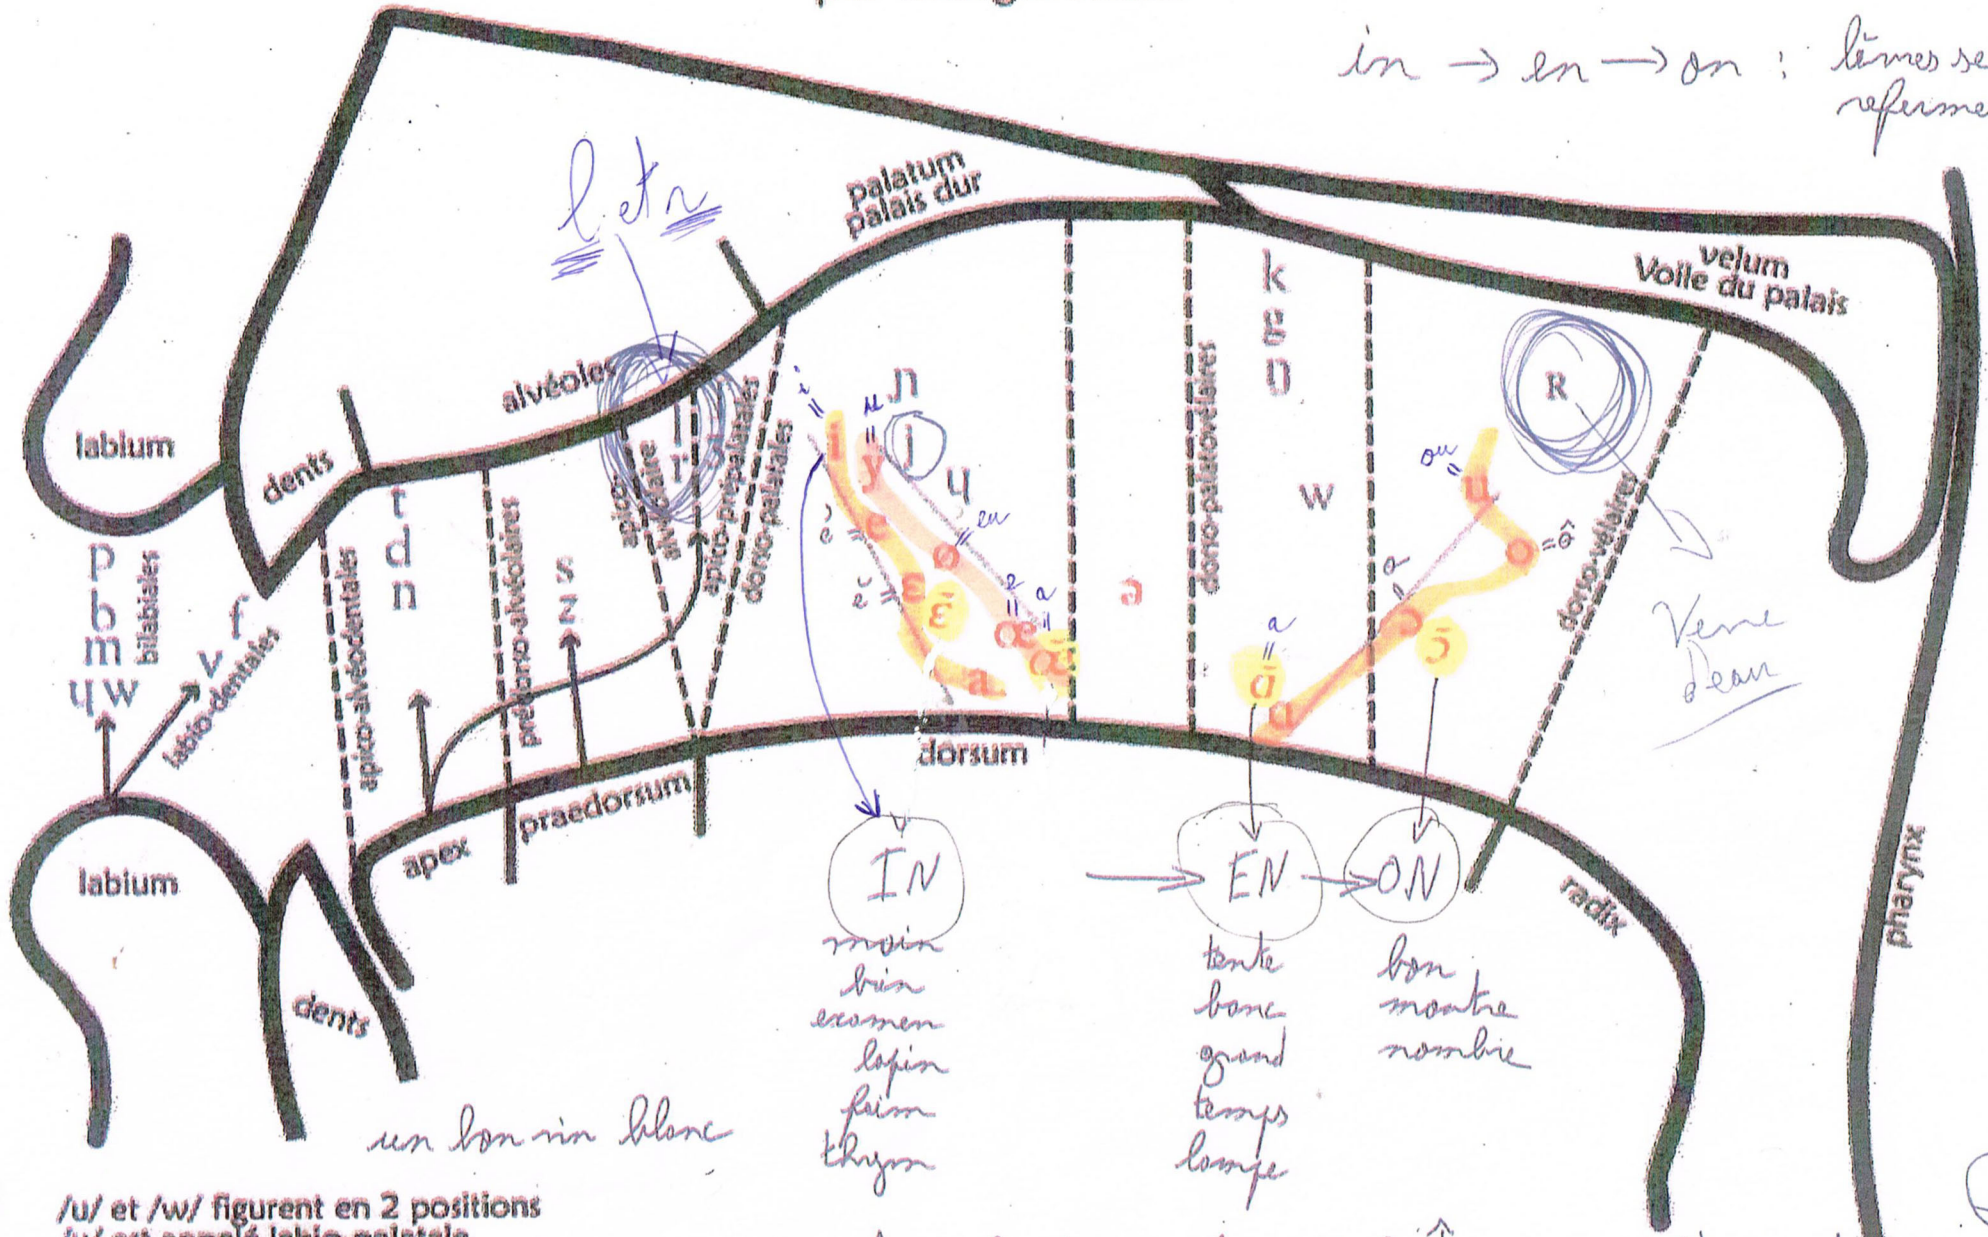 in → en → on : lèvres se
referme
l et r
palatum
palais dur
velum
Voile du palais
labium
dents
alvéoles
p
b
m
ɥ w
bilabiales
f
v
labio-dentales
apico-alvéodentales
t
d
n
prédorso-alvéolaires
s
z
apico-
alvéolaires
l
r
apico-prépalatales
dorso-palatales
i
i
u
y
ɲ
j
ɥ
é
e
eu
ø
è
ɛ
ɛ̃
e
œ
a
œ̃
a
ə
dorso-palatovélaires
k
g
ŋ
w
a
ɑ̃
ɑ
ou
u
o
=ô
o
ɔ
ɔ̃
R
dorso-vélaires
Verre
d'eau
labium
dents
apex
praedorsum
dorsum
radix
pharynx
IN → EN → ON
main
brin
examen
lapin
faim
thym
tente
banc
grand
temps
lampe
bon
montre
nombre
un bon vin blanc
/u/ et /w/ figurent en 2 positions